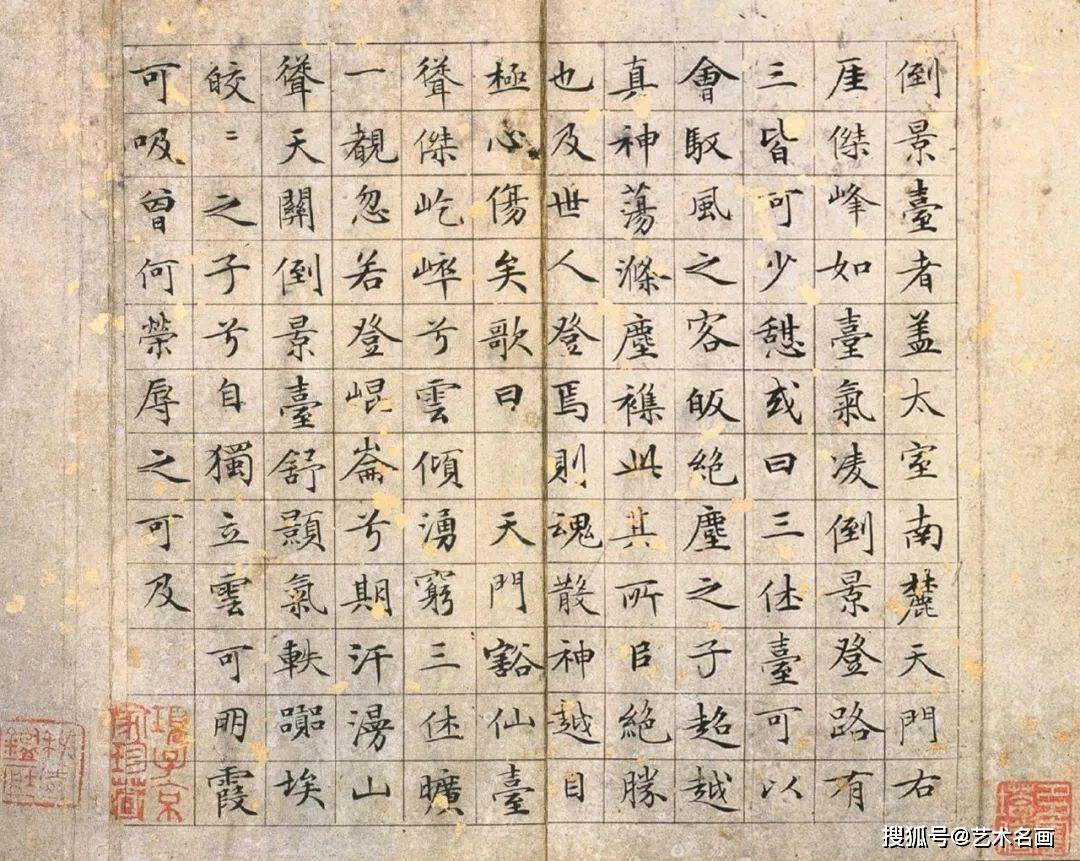 倒景臺者盖太室南麓天門右
厓傑峰如臺氣凌倒景登路有
三皆可少憇或曰三休臺可以
會馭風之客皈絶塵之子超越
真神蕩滌塵襍此其所㠯絶勝
也及世人登焉則魂散神越目
極心傷矣歌曰　天門豁仙臺
聳傑屹崒兮雲傾湧窮三休曠
一覩忽若登崐崙兮期汗漫山
聳天關倒景臺舒顥氣軼嚻埃
皎〻之子兮自獨立雲可朋霞
可吸曾何榮辱之可及
項子京家珍藏
搜狐号@艺术名画